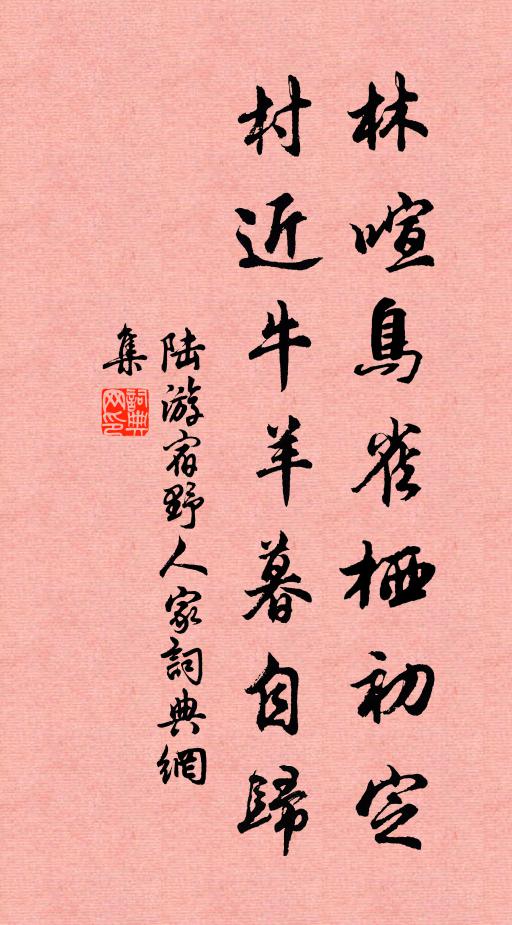 林喧鳥雀栖初定
村近牛羊暮自歸
陆游宿野人家詞典網
集
詞典网印